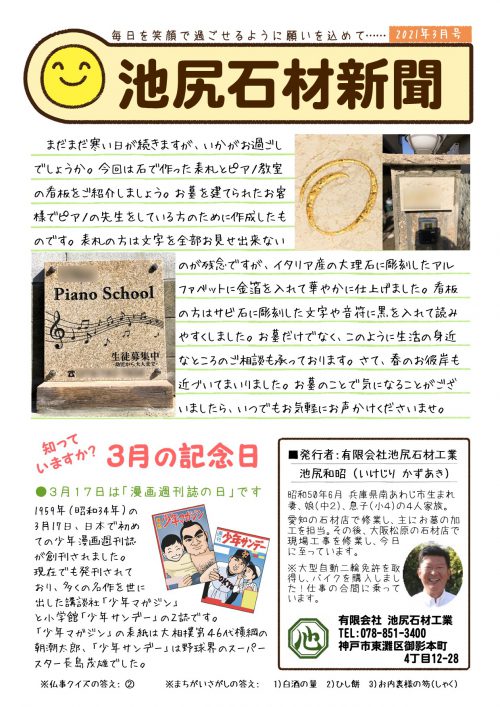 毎日を笑顔で過ごせるように願いを込めて……
2021年3月号
池尻石材新聞
まだまだ寒い日が続きますが、いかがお過ごし
でしょうか。今回は石で作った表札とピアノ教室
の看板をご紹介しましょう。お墓を建てられたお客
様でピアノの先生をしている方のために作成したも
のです。表札の方は文字を全部お見せ出来ない
のが残念ですが、イタリア産の大理石に彫刻したアル
ファベットに金箔を入れて華やかに仕上げました。看板
の方はサビ石に彫刻した文字や音符に黒を入れて読み
やすくしました。お墓だけでなく、このように生活の身近
なところのご相談も承っております。さて、春のお彼岸も
近づいてまいりました。お墓のことで気になることがござ
いましたら、いつでもお気軽にお声かけくださいませ。
Piano School
生徒募集中
知って
いますか?
3月の記念日
●3月17日は「漫画週刊誌の日」です
1959年(昭和34年)の
3月17日、日本で初め
ての少年漫画週刊誌
が創刊されました。
現在でも発刊されて
おり、多くの名作を世に
出した講談社「少年マガジン」
と小学館「少年サンデー」の2誌です。
「少年マガジン」の表紙は大相撲第46代横綱の
朝潮太郎、「少年サンデー」は野球界のスーパー
スター長島茂雄でした。
少年マガジン
少年サンデー
■発行者:有限会社池尻石材工業
池尻和昭(いけじり かずあき)
昭和50年6月 兵庫県南あわじ市生まれ
妻、娘(中2)、息子(小4)の4人家族。
愛知の石材店で修業し、主にお墓の加
工を担当。その後、大阪松原の石材店で
現場工事を修業し、今日
に至っています。
※大型自動二輪免許を取
得し、バイクを購入しまし
た!仕事の合間に乗って
います。
池
有限会社 池尻石材工業
TEL:078-851-3400
神戸市東灘区御影本町
4丁目12-28
※仏事クイズの答え:②
※まちがいさがしの答え: 1)白酒の量 2)ひし餅 3)お内裏様の笏(しゃく)